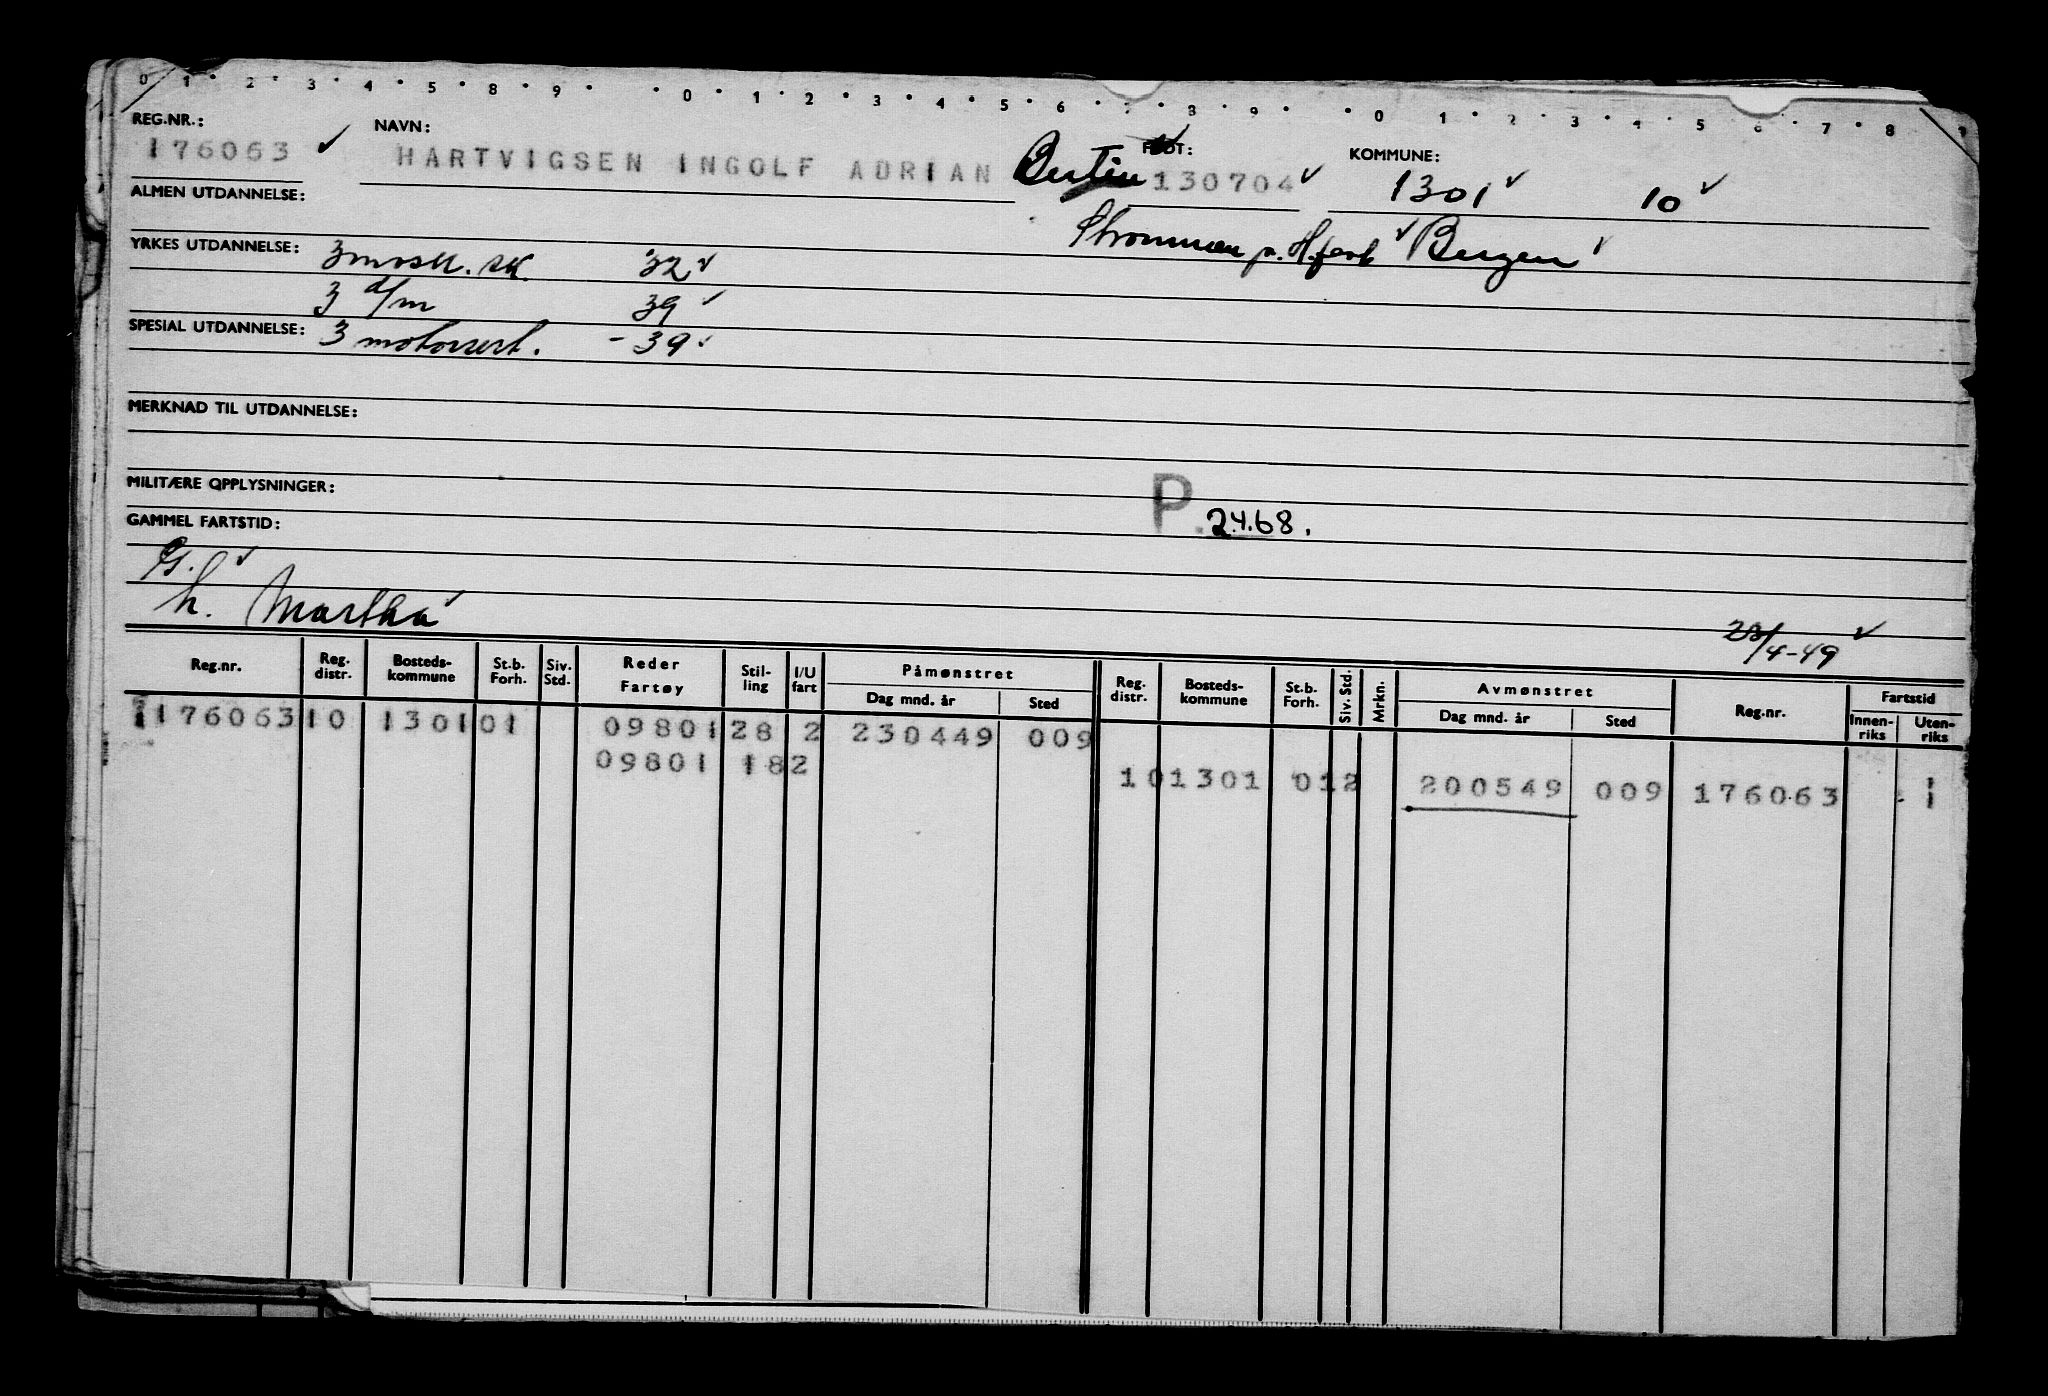 0 1 2 3 4 5 8 9 0 1 2 3 4 5 6 7 8 9 0 1 2 3 4 5 6 7 8 9
REG.NR.: NAVN: FØDT: KOMMUNE:
176063 HARTVIGSEN INGOLF ADRIAN 130704 1301 10
ALMEN UTDANNELSE:
p. Bergen
YRKES UTDANNELSE: 3 mask. sk. 32
3 d/m 39
SPESIAL UTDANNELSE: 3 motorsert. - 39
MERKNAD TIL UTDANNELSE:
MILITÆRE OPPLYSNINGER:
P. 2.4.68.
GAMMEL FARTSTID:
G.
h. Martha 23/4-49
Reg.nr. Reg. distr. Bosteds-kommune St.b. Forh. Siv. Std. Reder Fartøy Stil-ling I/U fart Påmønstret Dag mnd. år Sted Reg. distr. Bosteds-kommune St.b. Forh. Siv. Std. Mrkn. Avmønstret Dag mnd. år Sted Reg.nr. Fartstid Innen-riks Uten-riks
176063 10 1301 01 09801 28 2 230449 009
09801 182 10 1301 012 200549 009 176063 1